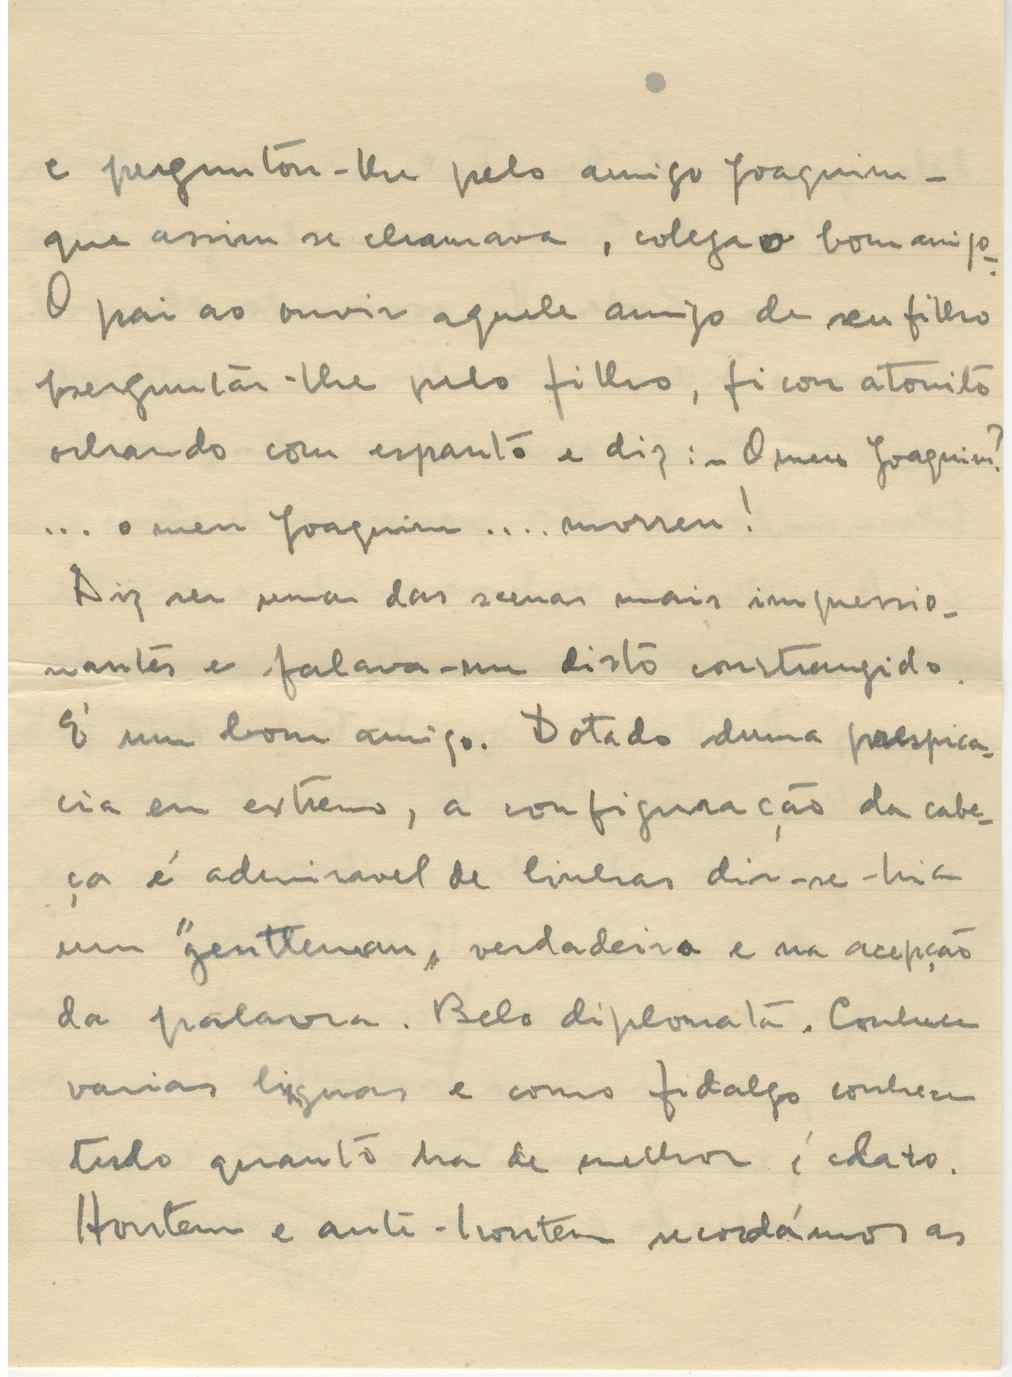 e perguntou-lhe pelo amigo Joaquim -
que assim se chamava, colega e bom amigo.
O pai ao ouvir aquele amigo de seu filho
perguntár-lhe pelo filho, ficou atonito
olhando com espanto e diz: - O meu Joaquim?
... o meu Joaquim .... morreu!
Diz ser uma das scenas mais impressio-
nantes e falava-me disto constrangido.
É um bom amigo. Dotado duma prespica-
cia em extremo, a configuração da cabe-
ça é admiravel de linhas dir-se-hia
um "gentleman" verdadeiro e na acepção
da palavra. Belo diplomata. Conhece
varias linguas e como fidalgo conhece
tudo quanto ha de melhor é claro.
Hontem e anti-hontem recordámos as